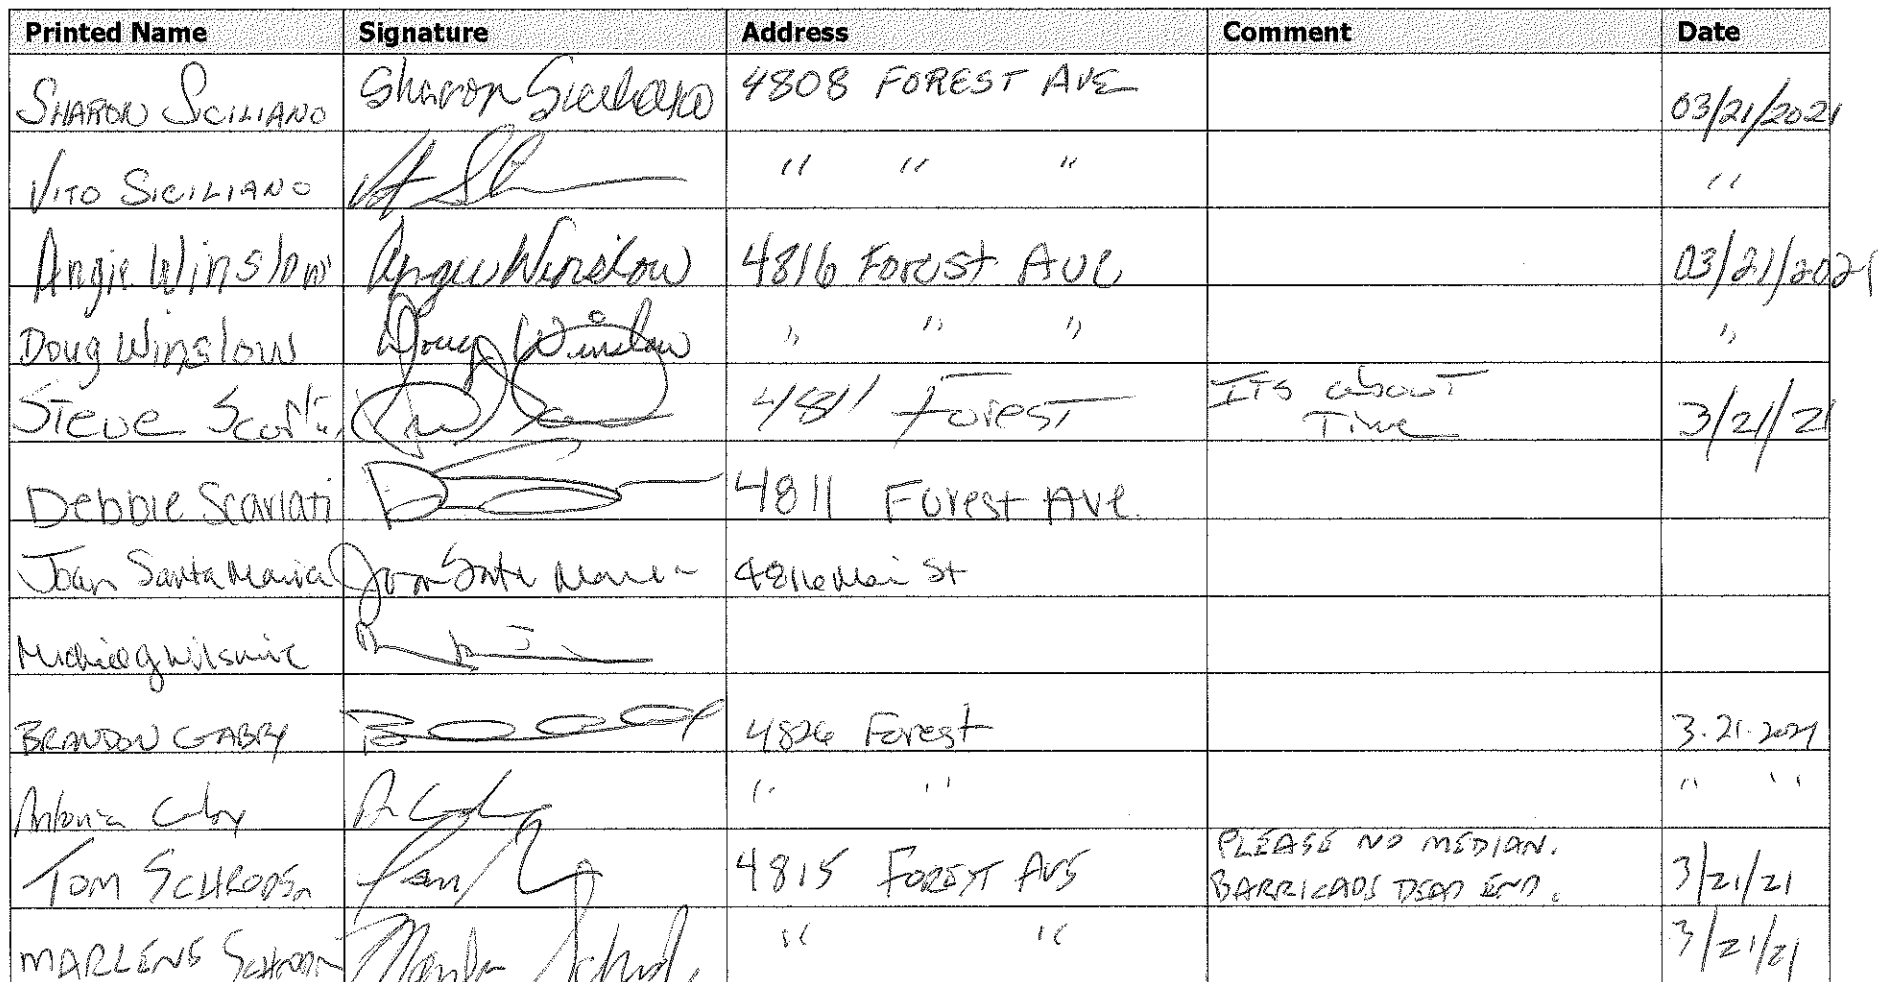 Printed Name Signature Address Comment Date
SHARON SICILIANO Sharon Siciliano 4808 FOREST AVE 03/21/2021
VITO SICILIANO " " " "
Angie Winslow Angie Winslow 4816 Forest Ave 03/21/2021
Doug Winslow Doug Winslow " " " "
Steve 4811 Forest ITS about
Time 3/21/21
Debbie Scarlati 4811 Forest Ave.
Joan Santa Maria Joan Santa Maria 4816 Main St
BRANDON GABRY 4826 Forest 3.21.2021
" " " "
TOM SCHRODER 4815 FOREST AVE PLEASE NO MEDIAN.
BARRICADE DEAD END. 3/21/21
MARLENE " " 3/21/21